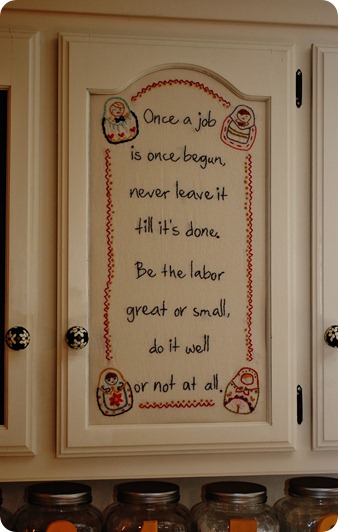 Once a job
is once begun,
never leave it
till it's done.
Be the labor
great or small,
do it well
or not at all.